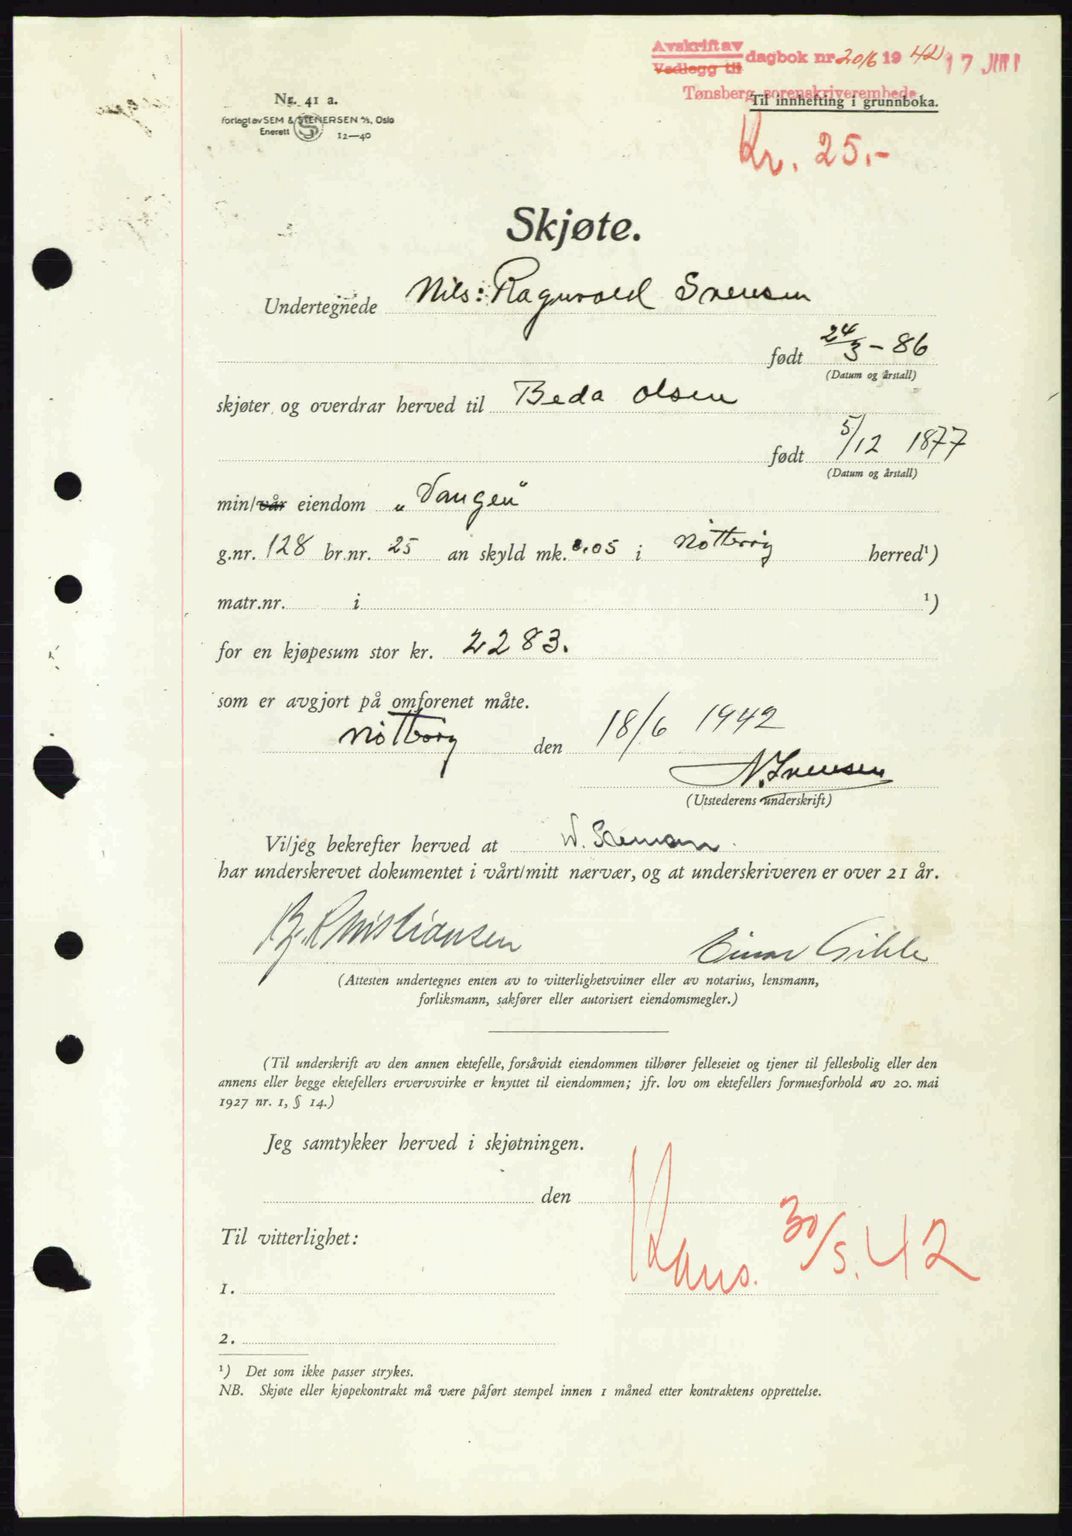 Avskrift av
Vedlegg til dagbok nr 2016 19 42 17 JUNI
Tønsberg sorenskriverembede
Til innhefting i grunnboka.
Nr. 41 a.
Forlagt av SEM & STENERSEN A/S, Oslo
Enerett 12—40
Kr. 25.-
Skjøte.
Undertegnede Nils: Ragnvald Svensen
født 24/3 - 86
(Datum og årstall)
skjøter og overdrar herved til Beda Olsen
født 5/12 1877
(Datum og årstall)
min/vår eiendom „Vangen"
g.nr. 128 br.nr. 25 an skyld mk. 0.05 i Nøtterøy herred¹)
matr.nr. i ¹)
for en kjøpesum stor kr. 2283.
som er avgjort på omforenet måte.
Nøtterøy den 18/6 1942
N. Svensen
(Utstederens underskrift)
Vi/jeg bekrefter herved at N. Svensen
har underskrevet dokumentet i vårt/mitt nærvær, og at underskriveren er over 21 år.
Bj. Kristiansen Einar Gihle
(Attesten undertegnes enten av to vitterlighetsvitner eller av notarius, lensmann,
forliksmann, sakfører eller autorisert eiendomsmegler.)
(Til underskrift av den annen ektefelle, forsåvidt eiendommen tilhører felleseiet og tjener til fellesbolig eller den
annens eller begge ektefellers ervervsvirke er knyttet til eiendommen; jfr. lov om ektefellers formuesforhold av 20. mai
1927 nr. 1, § 14.)
Jeg samtykker herved i skjøtningen.
den
Til vitterlighet:
Kans. 30/5. 42
1.
2.
¹) Det som ikke passer strykes.
NB. Skjøte eller kjøpekontrakt må være påført stempel innen 1 måned etter kontraktens opprettelse.